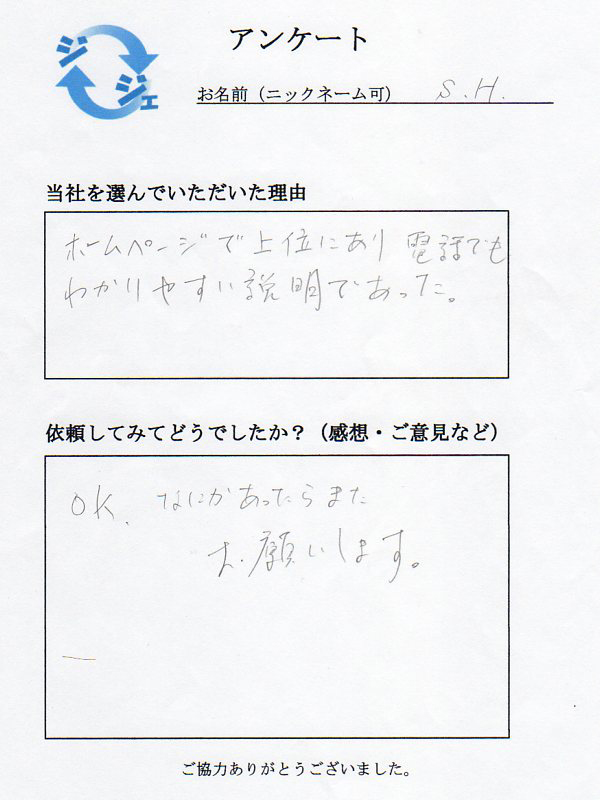 ジジェ
アンケート
お名前（ニックネーム可） S.H.
当社を選んでいただいた理由
ホームページで上位にあり 電話でも
わかりやすい説明であった。
依頼してみてどうでしたか？（感想・ご意見など）
OK. なにかあったらまた
お願いします。
ご協力ありがとうございました。